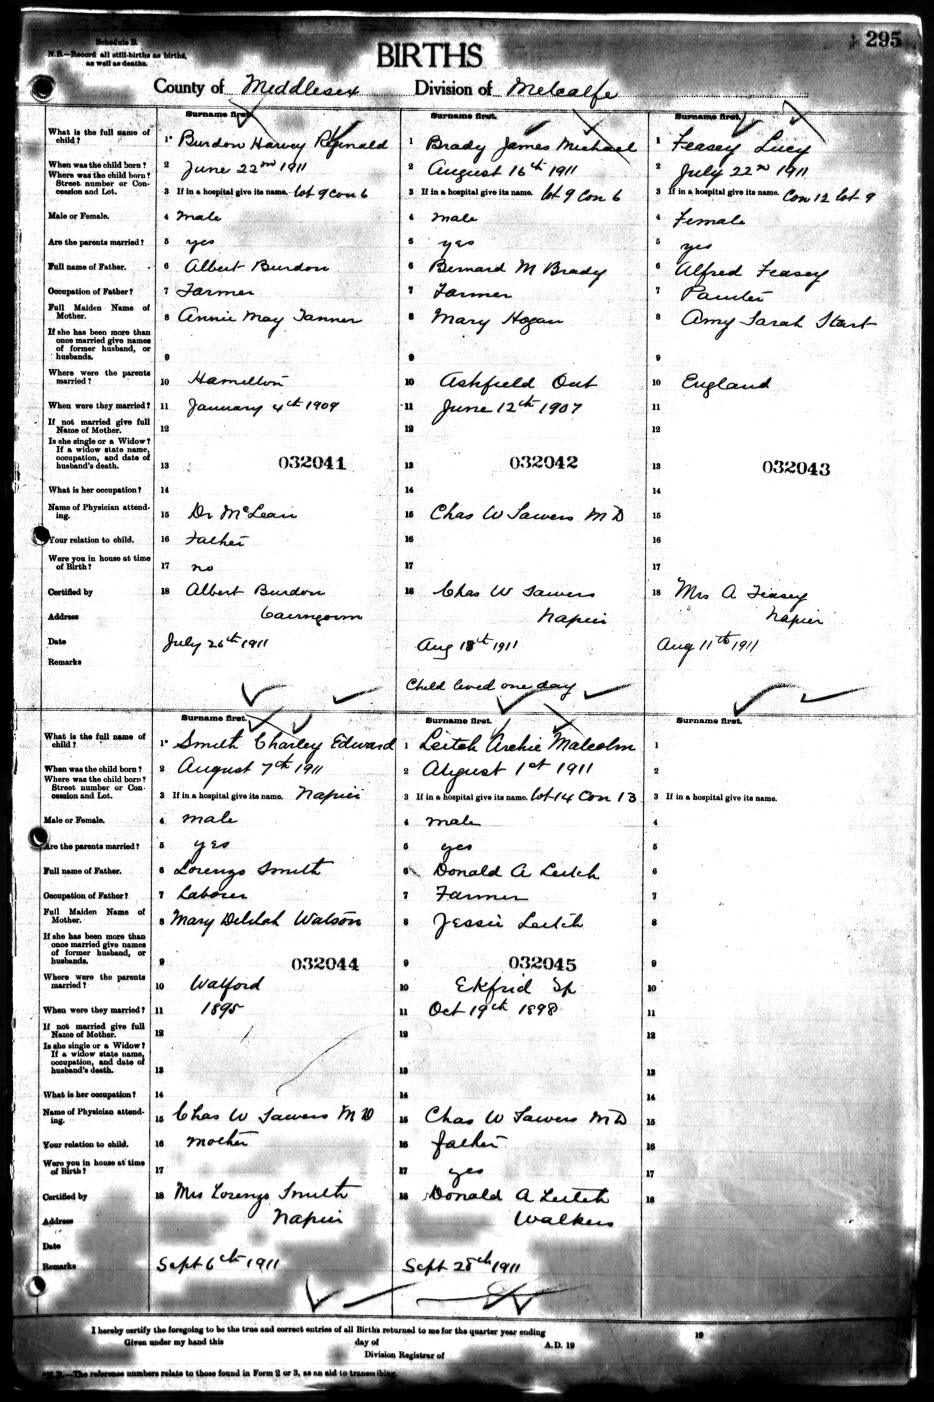 Schedule B.
N.B.—Record all still-births as births,
as well as deaths.
BIRTHS
295
County of Middlesex Division of Metcalfe
Surname first. Surname first. Surname first.
What is the full name of child? 1* Burdon Harvey Reginald 1 Brady James Michael 1 Feasey Lucy
When was the child born? 2 June 22nd 1911 2 August 16th 1911 2 July 22nd 1911
Where was the child born? Street number or Concession and Lot. 3 If in a hospital give its name. lot 9 Con 6 3 If in a hospital give its name. lot 9 Con 6 3 If in a hospital give its name. Con 12 lot 9
Male or Female. 4 male 4 male 4 Female
Are the parents married? 5 yes 5 yes 5 yes
Full name of Father. 6 Albert Burdon 6 Bernard M Brady 6 Alfred Feasey
Occupation of Father? 7 Farmer 7 Farmer 7 Painter
Full Maiden Name of Mother. 8 Annie May Tanner 8 Mary Hogan 8 Amy Sarah Start
If she has been more than once married give names of former husband, or husbands. 9 9 9
Where were the parents married? 10 Hamilton 10 Ashfield Ont 10 England
When were they married? 11 January 4th 1909 11 June 12th 1907 11
If not married give full Name of Mother. 12 12 12
Is she single or a Widow? If a widow state name, occupation, and date of husband's death. 13 032041 13 032042 13 032043
What is her occupation? 14 14 14
Name of Physician attending. 15 Dr McLean 15 Chas W Sawers M D 15
Your relation to child. 16 Father 16 16
Were you in house at time of Birth? 17 no 17 17
Certified by 18 Albert Burdon 18 Chas W Sawers 18 Mrs A Feasey
Address Cairngorm Napier Napier
Date July 26th 1911 Aug 18th 1911 Aug 11th 1911
Remarks Child lived one day
Surname first. Surname first. Surname first.
What is the full name of child? 1* Smith Charley Edward 1 Leitch Archie Malcolm 1
When was the child born? 2 August 7th 1911 2 August 1st 1911 2
Where was the child born? Street number or Concession and Lot. 3 If in a hospital give its name. Napier 3 If in a hospital give its name. lot 14 Con 13 3 If in a hospital give its name.
Male or Female. 4 male 4 male 4
Are the parents married? 5 yes 5 yes 5
Full name of Father. 6 Lorenzo Smith 6 Donald A Leitch 6
Occupation of Father? 7 Laborer 7 Farmer 7
Full Maiden Name of Mother. 8 Mary Delilah Watson 8 Jessie Leitch 8
If she has been more than once married give names of former husband, or husbands. 9 032044 9 032045 9
Where were the parents married? 10 Watford 10 Ekfrid Tp 10
When were they married? 11 1895 11 Oct 19th 1898 11
If not married give full Name of Mother. 12 12 12
Is she single or a Widow? If a widow state name, occupation, and date of husband's death. 13 13 13
What is her occupation? 14 14 14
Name of Physician attending. 15 Chas W Sawers M D 15 Chas W Sawers M D 15
Your relation to child. 16 mother 16 father 16
Were you in house at time of Birth? 17 17 yes 17
Certified by 18 Mrs Lorenzo Smith 18 Donald A Leitch 18
Address Napier Walkers
Date
Remarks Sept 6th 1911 Sept 28th 1911
I hereby certify the foregoing to be the true and correct entries of all Births returned to me for the quarter year ending 19
Given under my hand this day of A.D. 19
Division Registrar of
*N.B.—The reference numbers relate to those found in Form 2 or 3, as an aid to transcribing.